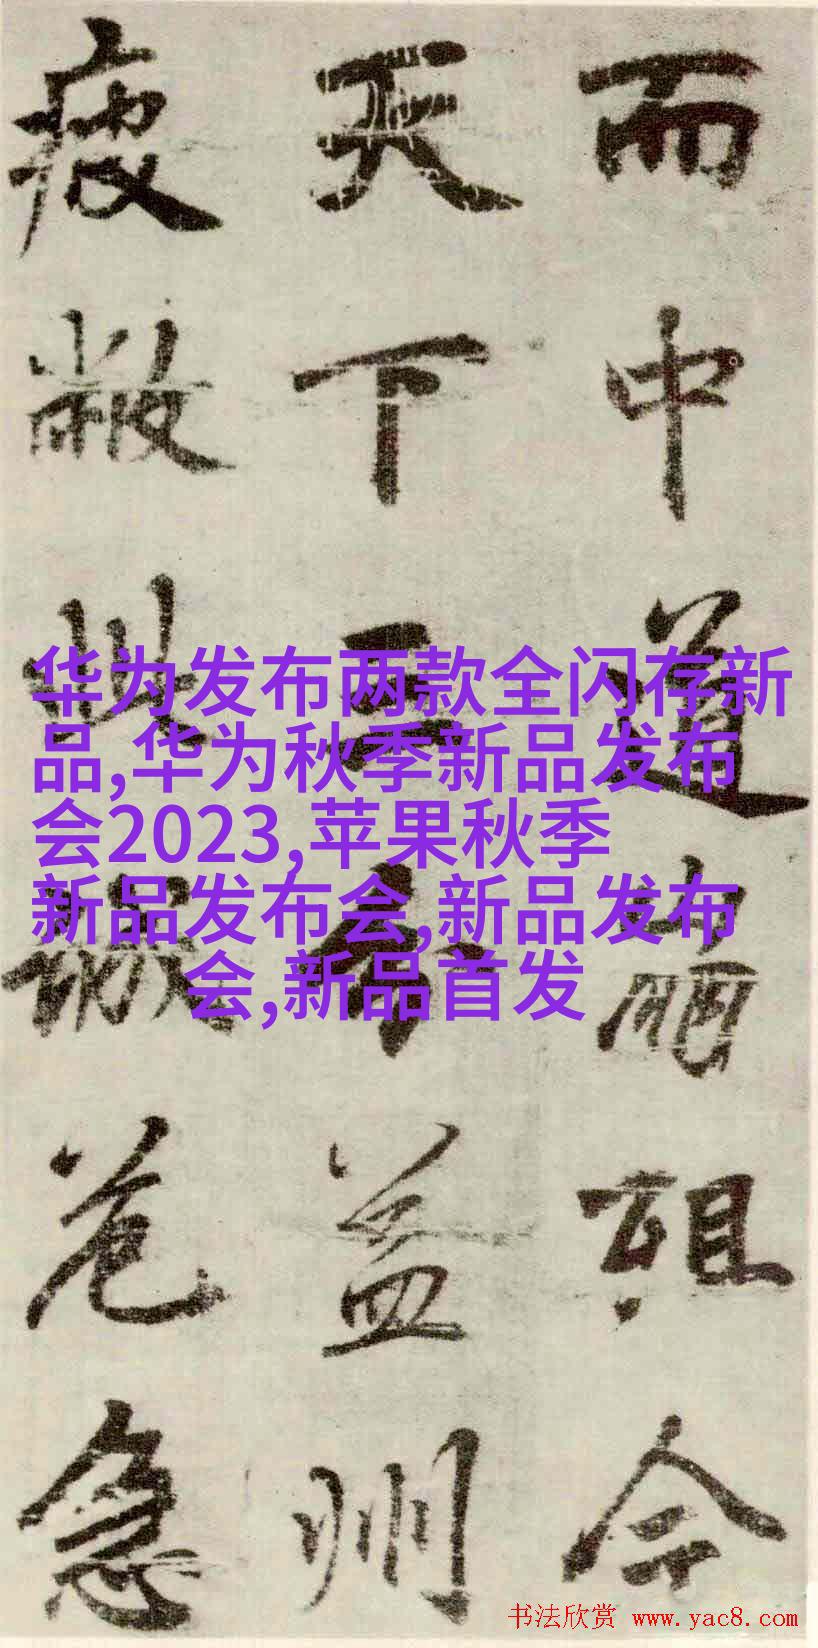 而中道崩殂今
天下三分益州
疲敝此誠危急
华为发布两款全闪存新
品,华为秋季新品发布
会2023,苹果秋季
新品发布会,新品发布
会,新品首发
书法欣赏 www.yac8.com